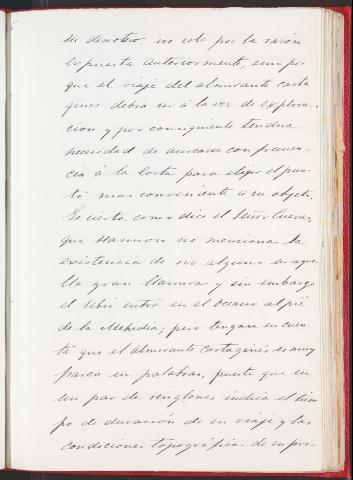 su derrotero, no solo por la razón
expuesta anteriormente, sino por
que el viaje del almirante carta
ginés debia ser á la vez de explora-
cion y por consiguiente tendria
necesidad de acercarse con frecuen-
cia á la costa para elegir el pun-
to mas conveniente á su objeto.
Es cierto, como dice el Señor Cuevas,
que Hannon no menciona la
existencia de rio alguno en aque
lla gran llanura y sin embargo
el Sebú entra en el Oceano al pié
de la Mehedia; pero téngase en cuen
ta que el Almirante Cartaginés es muy
parco en palabras, puesto que en
un par de renglones indica el tiem
po de duración de su viaje y las
condiciones topográficas de su pro-